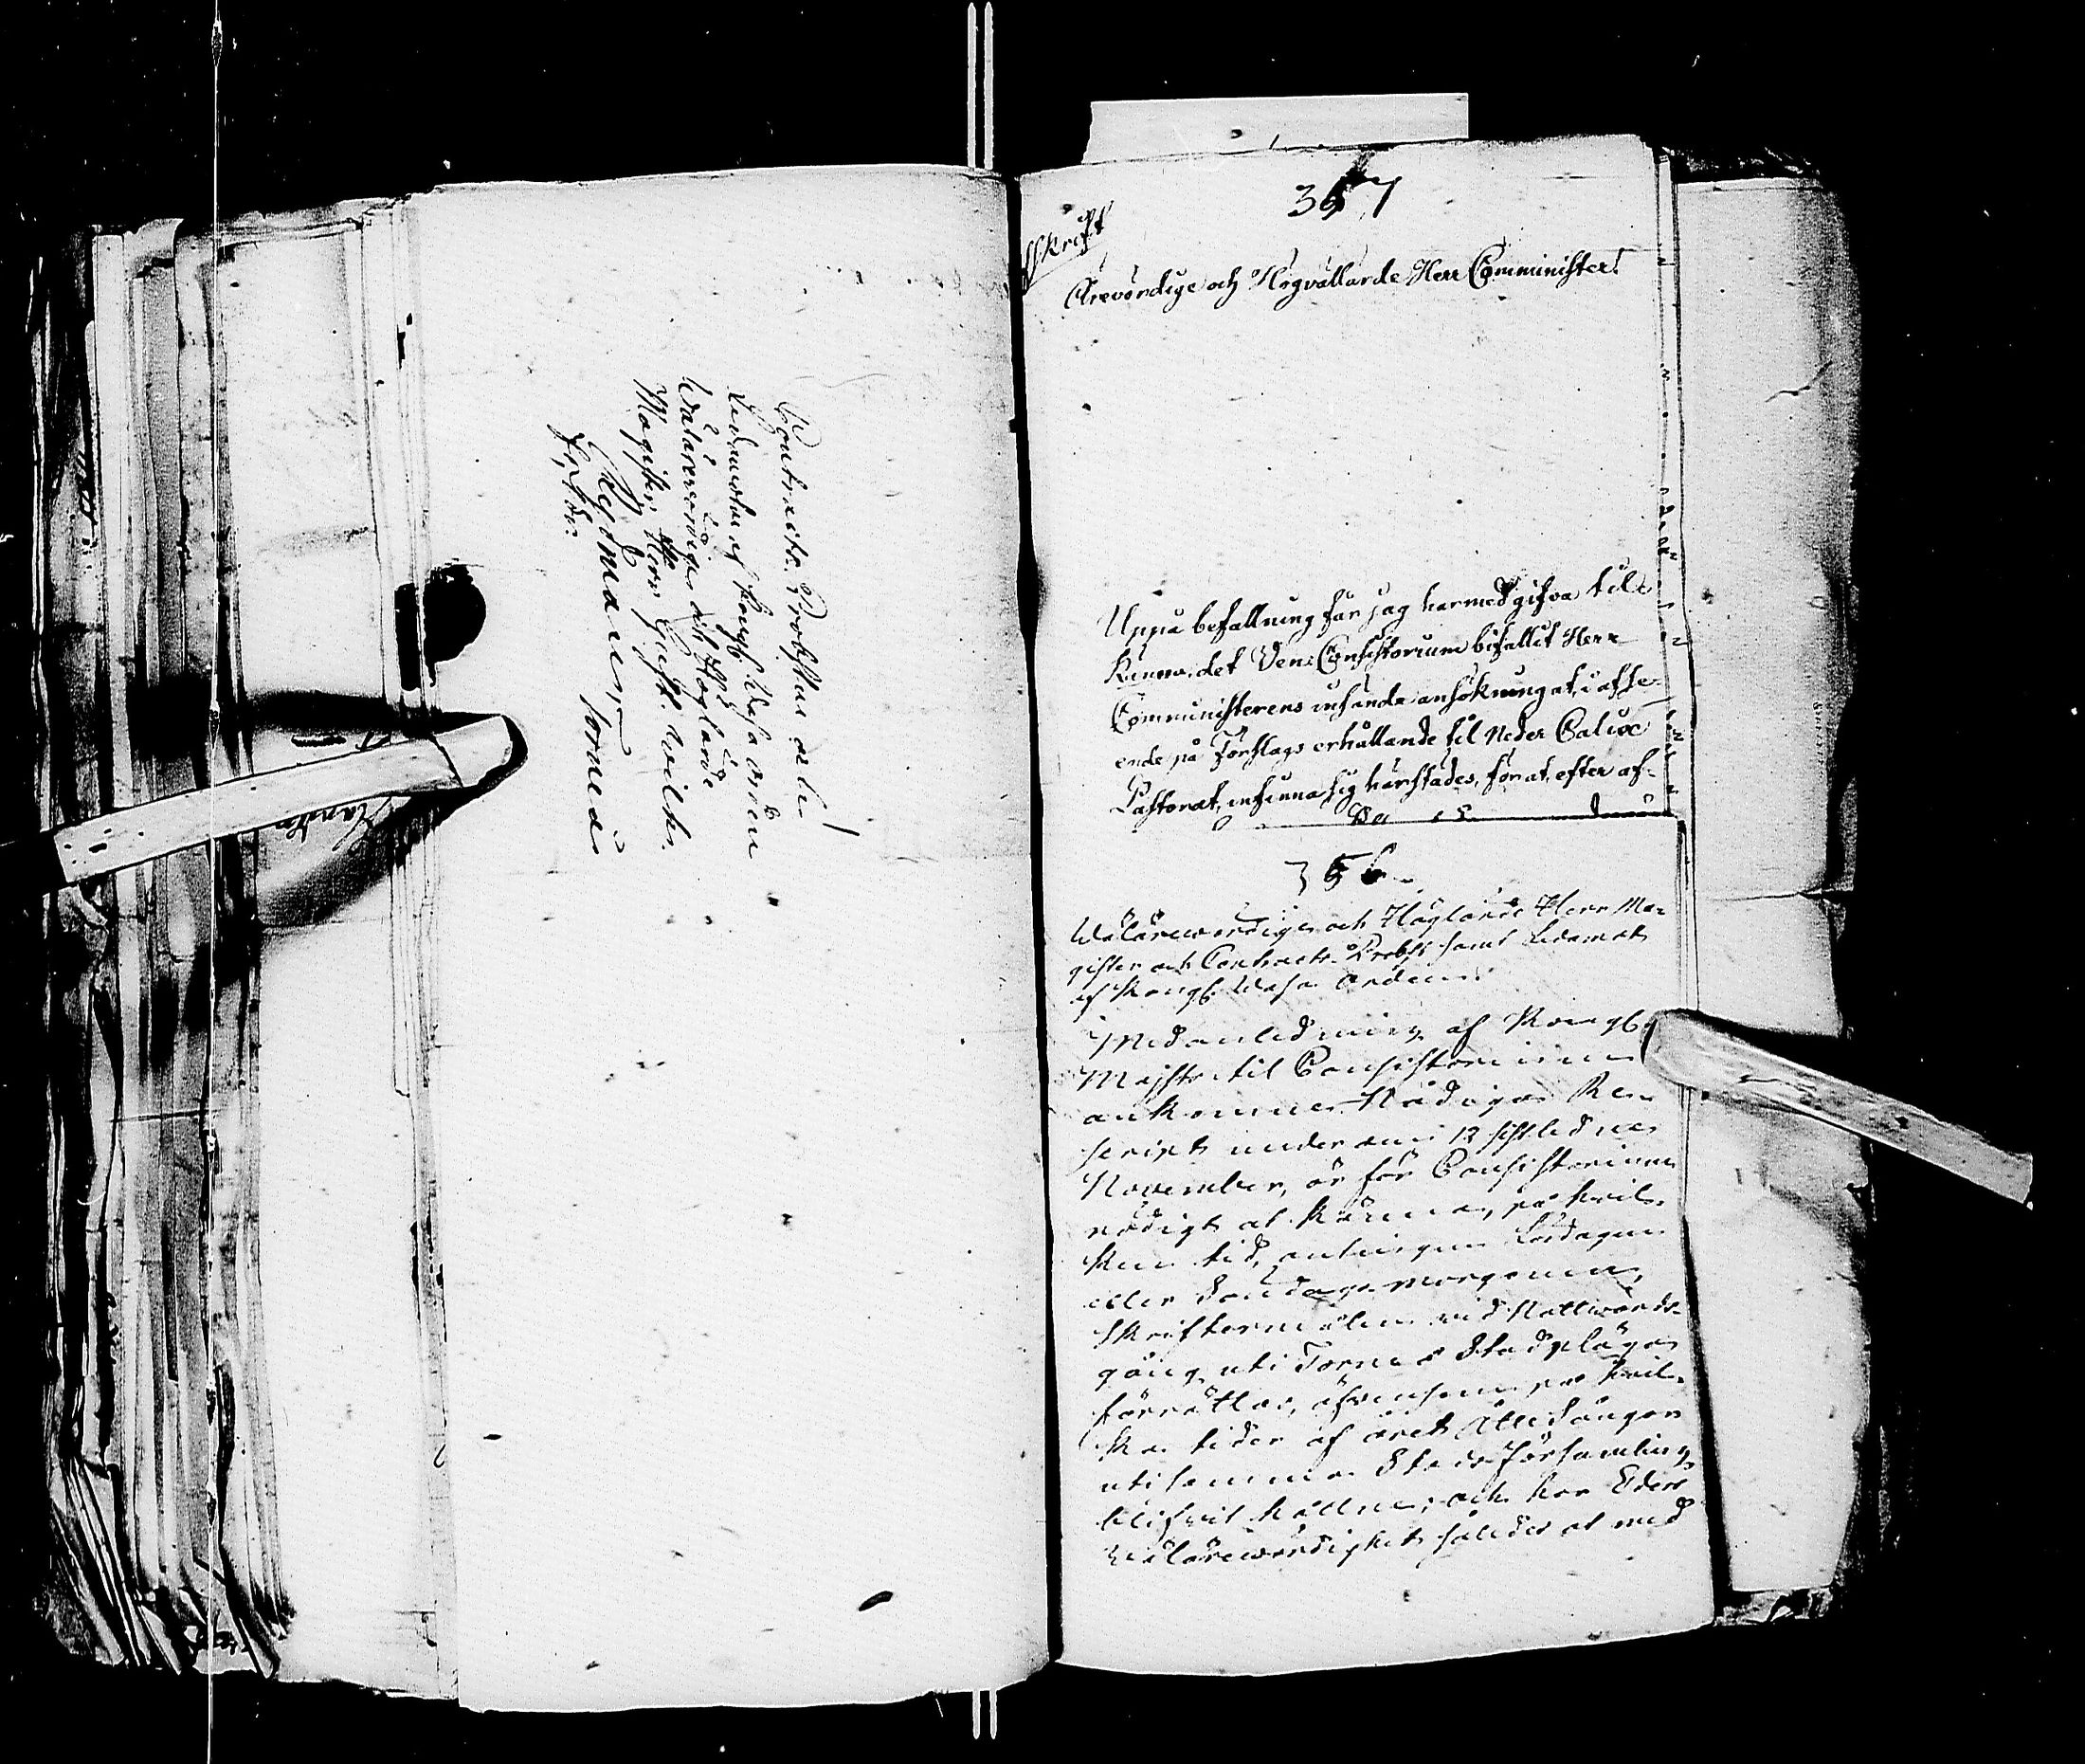 Contracts Probsten och
Ledamoten af Kongl. Wasa orden
Wälärevördige och Höglärde
Magister Herr Gust. Wilh.
Hedman,
Torneå
357
Afskrift
Ärevördige och Högvällärde Herr Comminister!
Uppå befallning får jag härmed gifva til
känna, det Ven: Consistorium bifallit Herr
Comministerens insända ansökning at, i afse-
ende på Förslags erhållande til Neder Calix
Pastorat, infinna sig härstädes, för at, efter af-
356
Wälärevördige och Höglärde Herr Ma-
gister och Contracts-Probst samt Ledamot
af Kongl. Wasa Orden.
Med anledning af Kongl.
Majsts til Consistorium
ankomne Nådiga Re-
script under den 12 sistledne
November, är för Consistorium
nödigt at känna, på hvil-
ken tid, antingen Lördagen
eller Söndags morgonen,
Skriftermålen vid Nattwards-
gång uti Torneå Stad pläga
förrättas, äfvensom på hvil-
ka tider af året Ottesången
uti samma Stads Församling
blifvit hållne; och har Eder
Wälärevördighet således at med